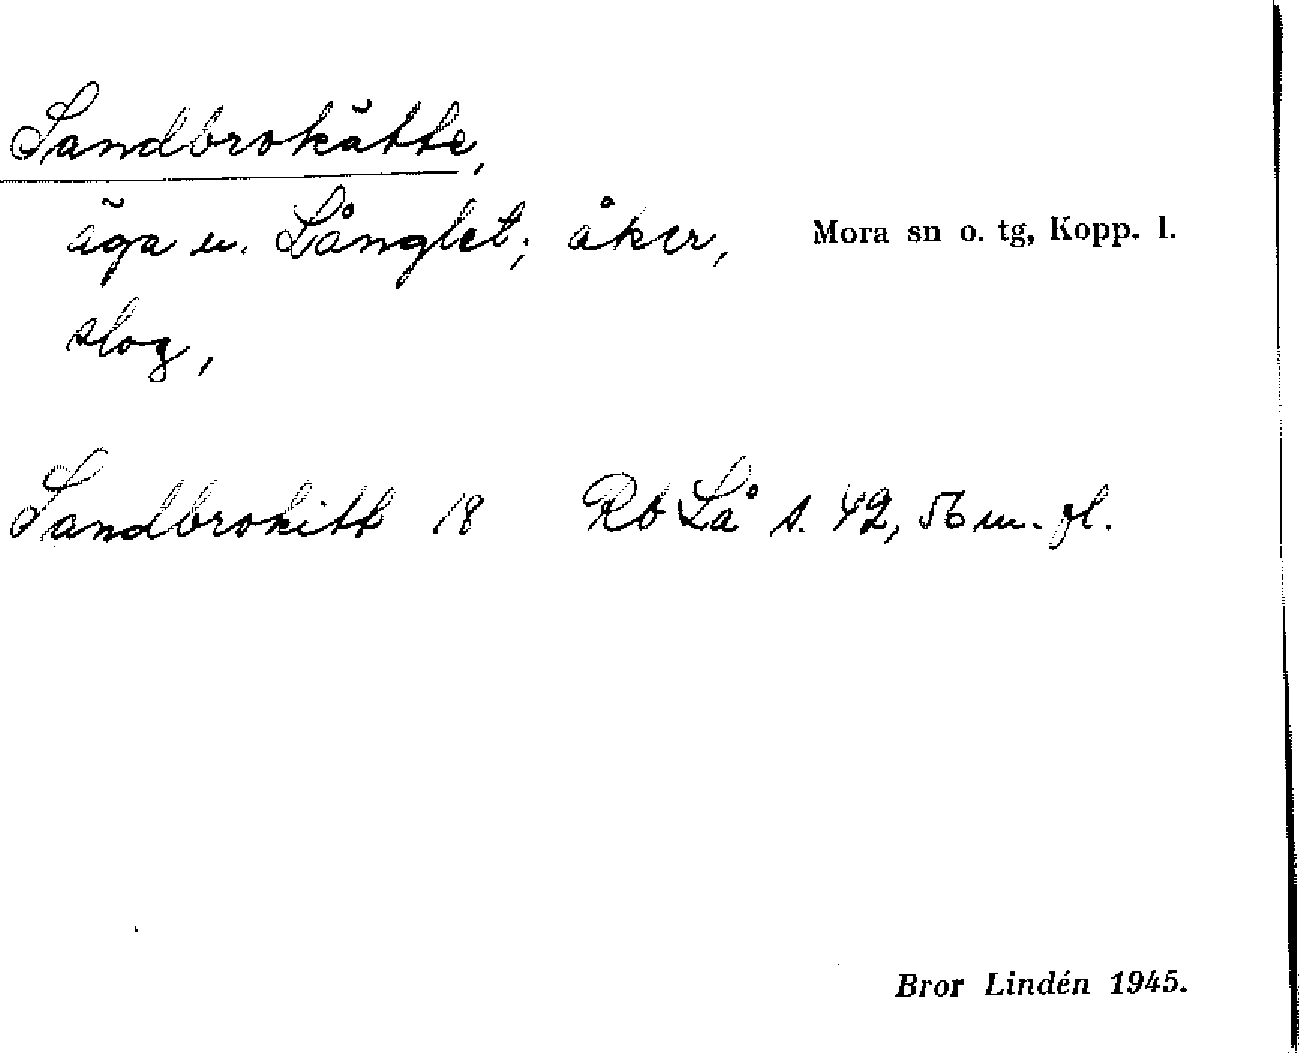 Sandbrokätte,
äga u. Långlet; åker,
Mora sn o. tg, Kopp. l.
slog,
Sandbrokitt 18 Rb Lå s. 42, 56 m. fl.
Bror Lindén 1945.